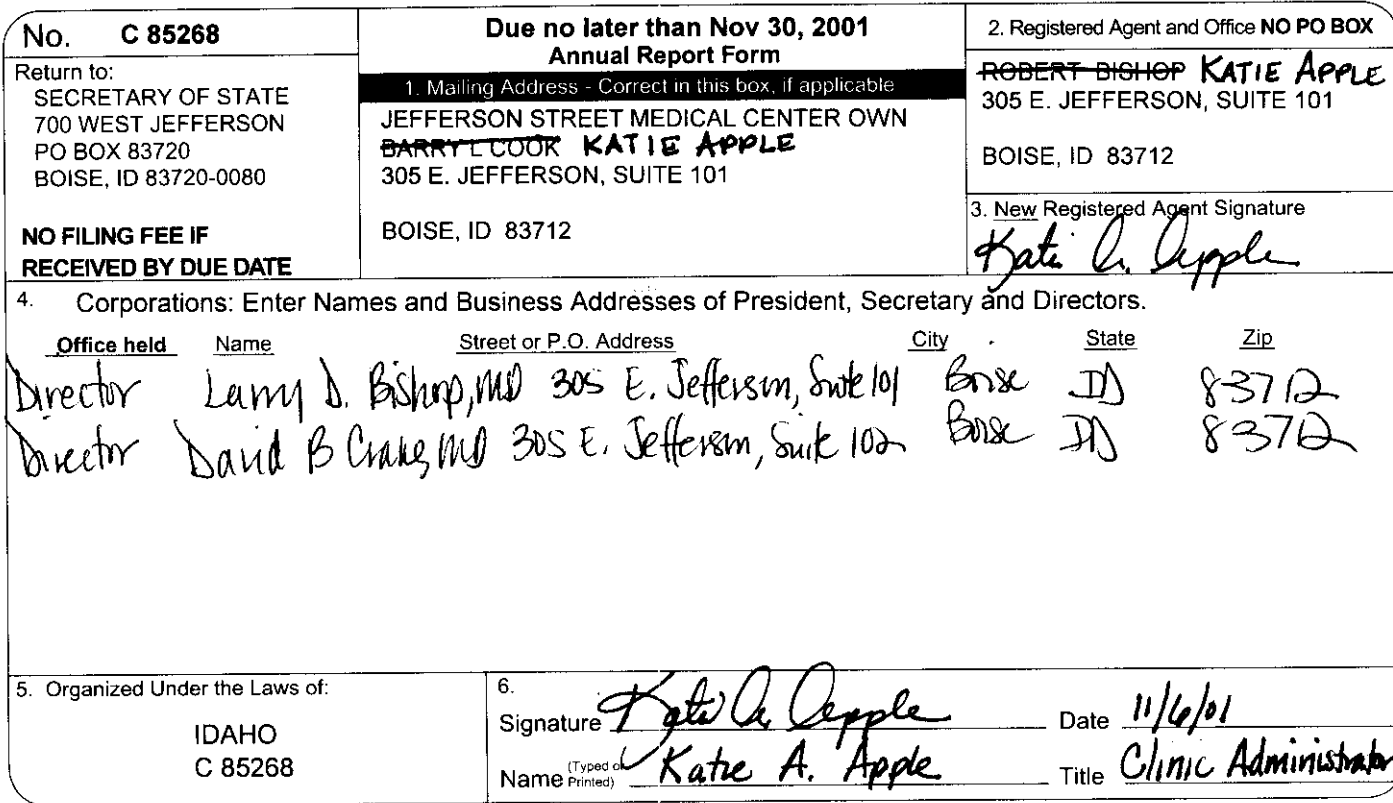 No. C 85268
Return to:
SECRETARY OF STATE
700 WEST JEFFERSON
PO BOX 83720
BOISE, ID 83720-0080
NO FILING FEE IF
RECEIVED BY DUE DATE
Due no later than Nov 30, 2001
Annual Report Form
1. Mailing Address - Correct in this box, if applicable
JEFFERSON STREET MEDICAL CENTER OWN
BARRY L COOK KATIE APPLE
305 E. JEFFERSON, SUITE 101
BOISE, ID 83712
2. Registered Agent and Office NO PO BOX
ROBERT BISHOP KATIE APPLE
305 E. JEFFERSON, SUITE 101
BOISE, ID 83712
3. New Registered Agent Signature
Katie A. Apple
4. Corporations: Enter Names and Business Addresses of President, Secretary and Directors.
Office held Name Street or P.O. Address City State Zip
Director Larry D. Bishop, MD 305 E. Jefferson, Suite 101 Boise ID 83712
Director David B MD 305 E. Jefferson, Suite 102 Boise ID 83712
5. Organized Under the Laws of:
IDAHO
C 85268
6.
Signature Katie A. Apple Date 11/6/01
Name (Typed or Printed) Katie A. Apple Title Clinic Administrator